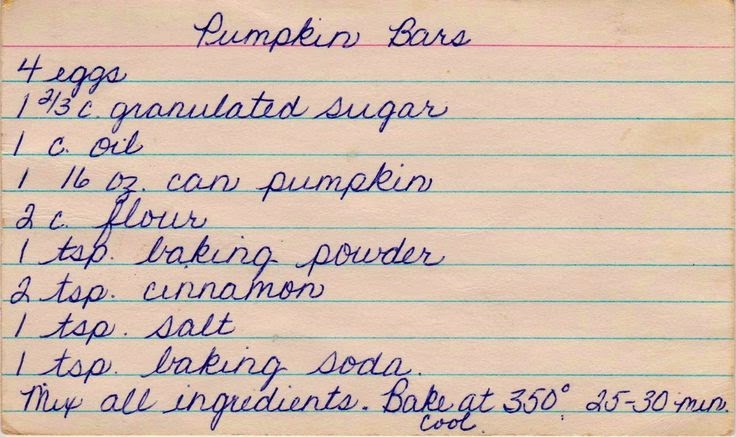 Pumpkin Bars
4 eggs
1 2/3 c. granulated sugar
1 c. oil
1 16 oz. can pumpkin
2 c. flour
1 tsp. baking powder
2 tsp. cinnamon
1 tsp. salt
1 tsp. baking soda.
Mix all ingredients. Bake at 350° 25-30 min.
Cool.